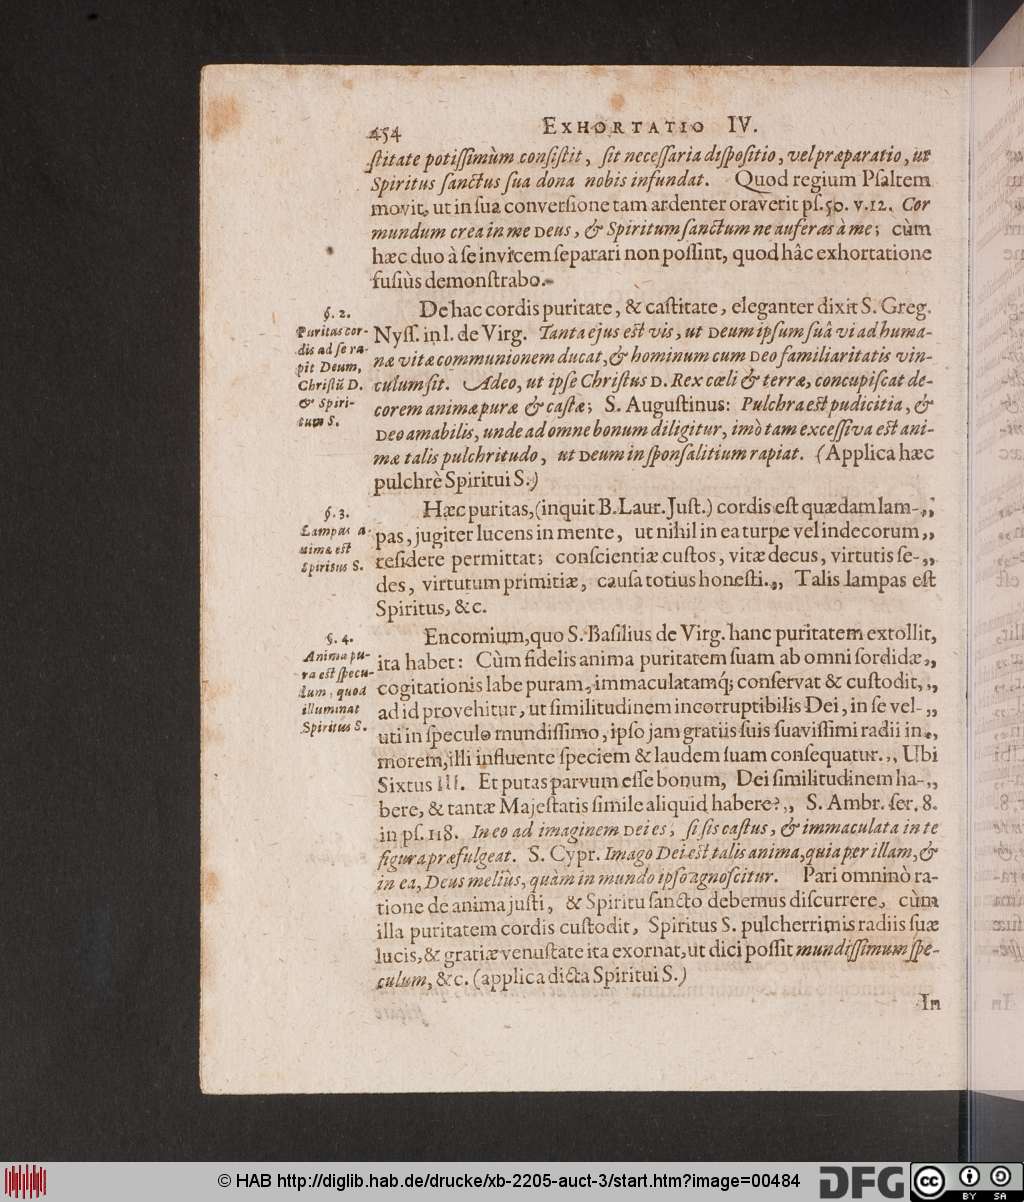 454 EXHORTATIO IV.
ſtitate potiſſimùm conſiſtit, ſit neceſſaria diſpoſitio, vel præparatio, ut
Spiritus ſanctus ſua dona nobis infundat. Quod regium Pſaltem
movit, ut in ſua converſione tam ardenter oraverit pſ. 50. v. 12. Cor
mundum crea in me DEUS, & Spiritum ſanctum ne auferas à me; cùm
hæc duo à ſe invicem ſeparari non poſſint, quod hâc exhortatione
fuſiùs demonſtrabo.
§. 2.
Puritas cor-
dis ad ſe ra-
pit Deum,
Chriſtū D.
& Spiri-
tum S.
De hac cordis puritate, & caſtitate, eleganter dixit S. Greg.
Nyſſ. in l. de Virg. Tanta ejus eſt vis, ut DEUM ipſum ſuâ vi ad huma-
næ vitæ communionem ducat, & hominum cum DEO familiaritatis vin-
culum ſit. Adeo, ut ipſe Chriſtus D. Rex cœli & terræ, concupiſcat de-
corem animæ puræ & caſtæ; S. Auguſtinus: Pulchra eſt pudicitia, &
DEO amabilis, unde ad omne bonum diligitur, imò tam exceſſiva eſt ani-
mæ talis pulchritudo, ut DEUM in ſponſalitium rapiat. (Applica hæc
pulchrè Spiritui S.)
§. 3.
Lampas a-
nimæ eſt
Spiritus S.
Hæc puritas, (inquit B. Laur. Juſt.) cordis eſt quædam lam-„
pas, jugiter lucens in mente, ut nihil in ea turpe vel indecorum„
reſidere permittat; conſcientiæ cuſtos, vitæ decus, virtutis ſe-„
des, virtutum primitiæ, cauſa totius honeſti.„ Talis lampas eſt
Spiritus, &c.
§. 4.
Anima pu-
ra eſt ſpecu-
lum, quod
illuminat
Spiritus S.
Encomium, quo S. Baſilius de Virg. hanc puritatem extollit,
ita habet: Cùm fidelis anima puritatem ſuam ab omni ſordidæ„
cogitationis labe puram, immaculatamq́; conſervat & cuſtodit,„
ad id provehitur, ut ſimilitudinem incorruptibilis Dei, in ſe vel-„
uti in ſpeculo mundiſſimo, ipſo jam gratiis ſuis ſuaviſſimi radii in„
morem, illi influente ſpeciem & laudem ſuam conſequatur.„ Ubi
Sixtus III. Et putas parvum eſſe bonum, Dei ſimilitudinem ha-„
bere, & tantæ Majeſtatis ſimile aliquid habere?„ S. Ambr. ſer. 8.
in pſ. 118. In eo ad imaginem DEI es, ſi ſis caſtus, & immaculata in te
figura præfulgeat. S. Cypr. Imago Dei eſt talis anima, quia per illam, &
in ea, Deus meliùs, quàm in mundo ipſo agnoſcitur. Pari omninò ra-
tione de anima juſti, & Spiritu ſancto debemus diſcurrere, cùm
illa puritatem cordis cuſtodit, Spiritus S. pulcherrimis radiis ſuæ
lucis, & gratiæ venuſtate ita exornat, ut dici poſſit mundiſſimum ſpe-
culum, &c. (applica dicta Spiritui S.)
In
© HAB http://diglib.hab.de/drucke/xb-2205-auct-3/start.htm?image=00484
DFG
cc
BY SA